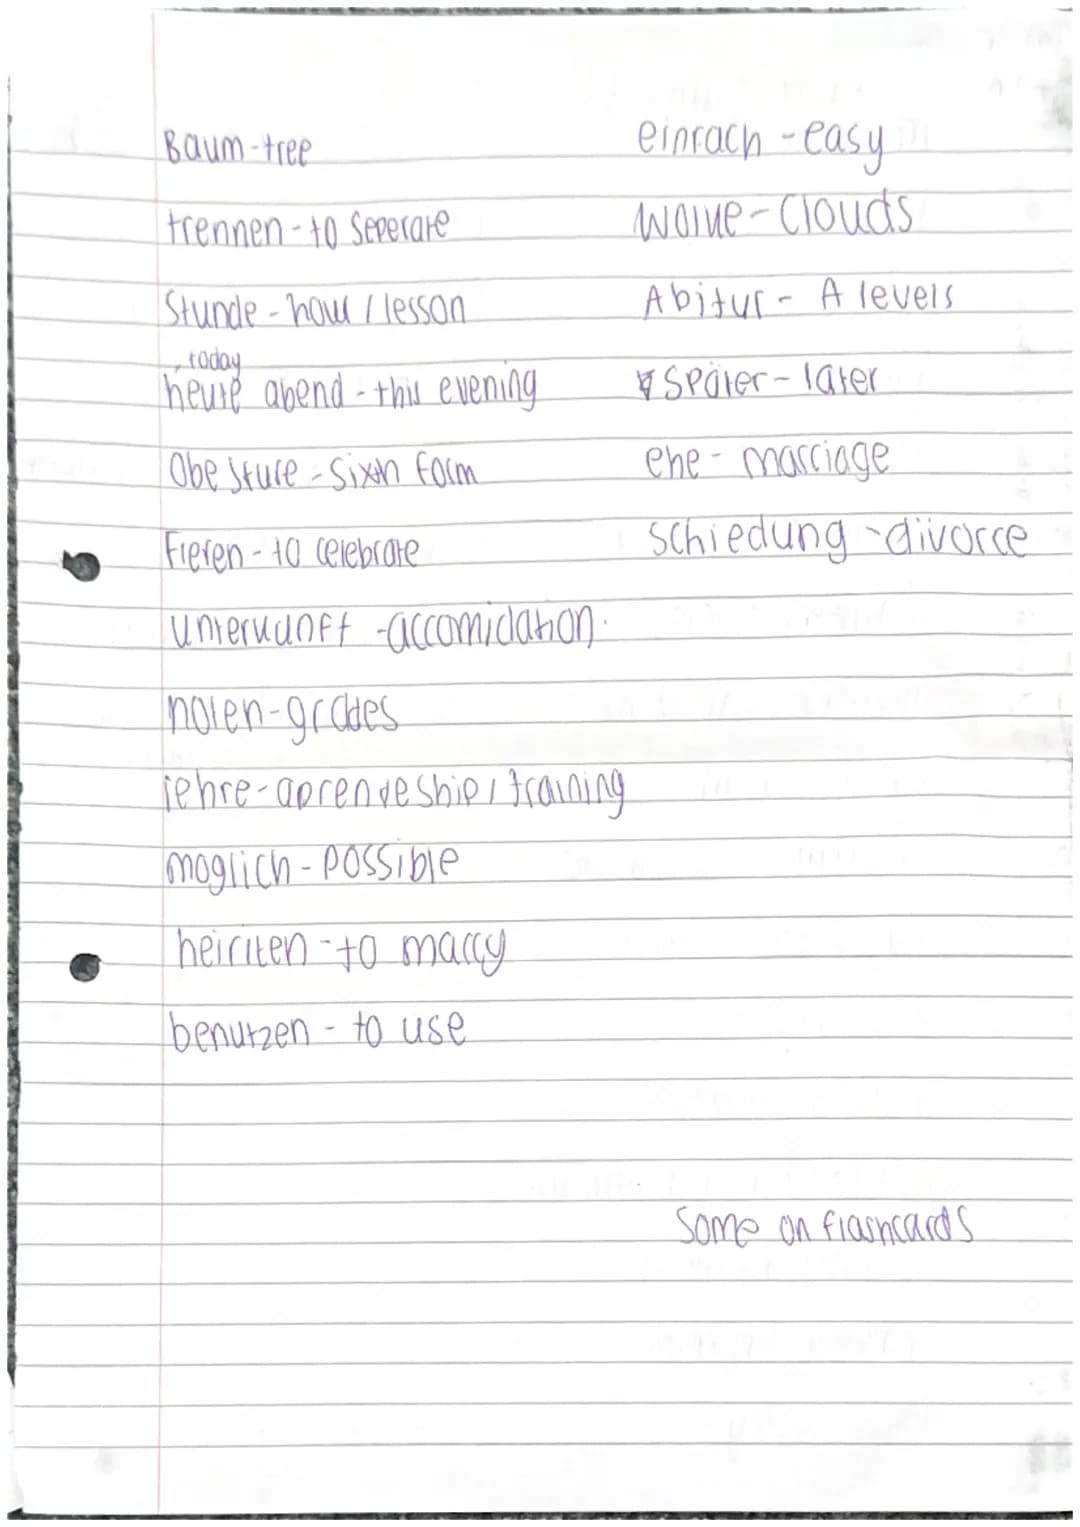 Baum - tree
trennen - to Seperate
Stunde - hour / lesson
today
heute abend - this evening
Obe Stufe - Sixth form
Fieren - to celebrate
unterkunft - accomidation.
noten - grades
lehre - aprenteship, training
moglich - possible
heiriten - to marry
benutzen - to use
einfach - easy
Wolke - Clouds
Abitur - A levels
später - later
ehe - marriage
schiedung - divorce
Some on flashcards